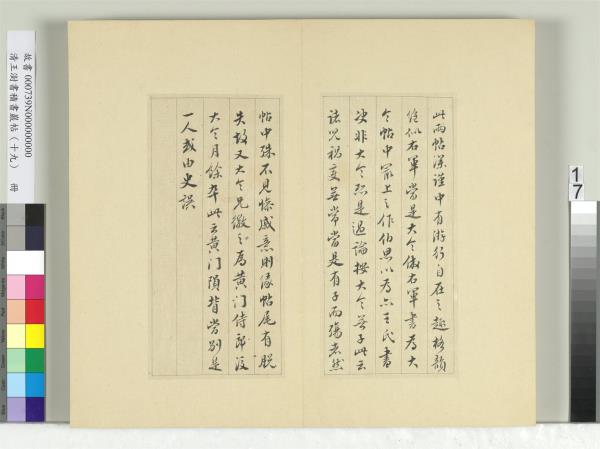 此兩帖深謹中有游行自在之趣格韻
絕似右軍當是大令倣右軍書為大
令帖中最上之作伯思以為亦王氏書
決非大令恐是過論按大令無子此云
諸兒禍變無常當是有子而殤者然
帖中殊不見慘戚意則後帖尾有脫
失故又大令兄徽之為黃門侍郎沒
大令月餘卒此云黃門隕背當別是
一人或由史誤
故書 000739N000000000
清王澍書積書巖帖(十九) 冊
17